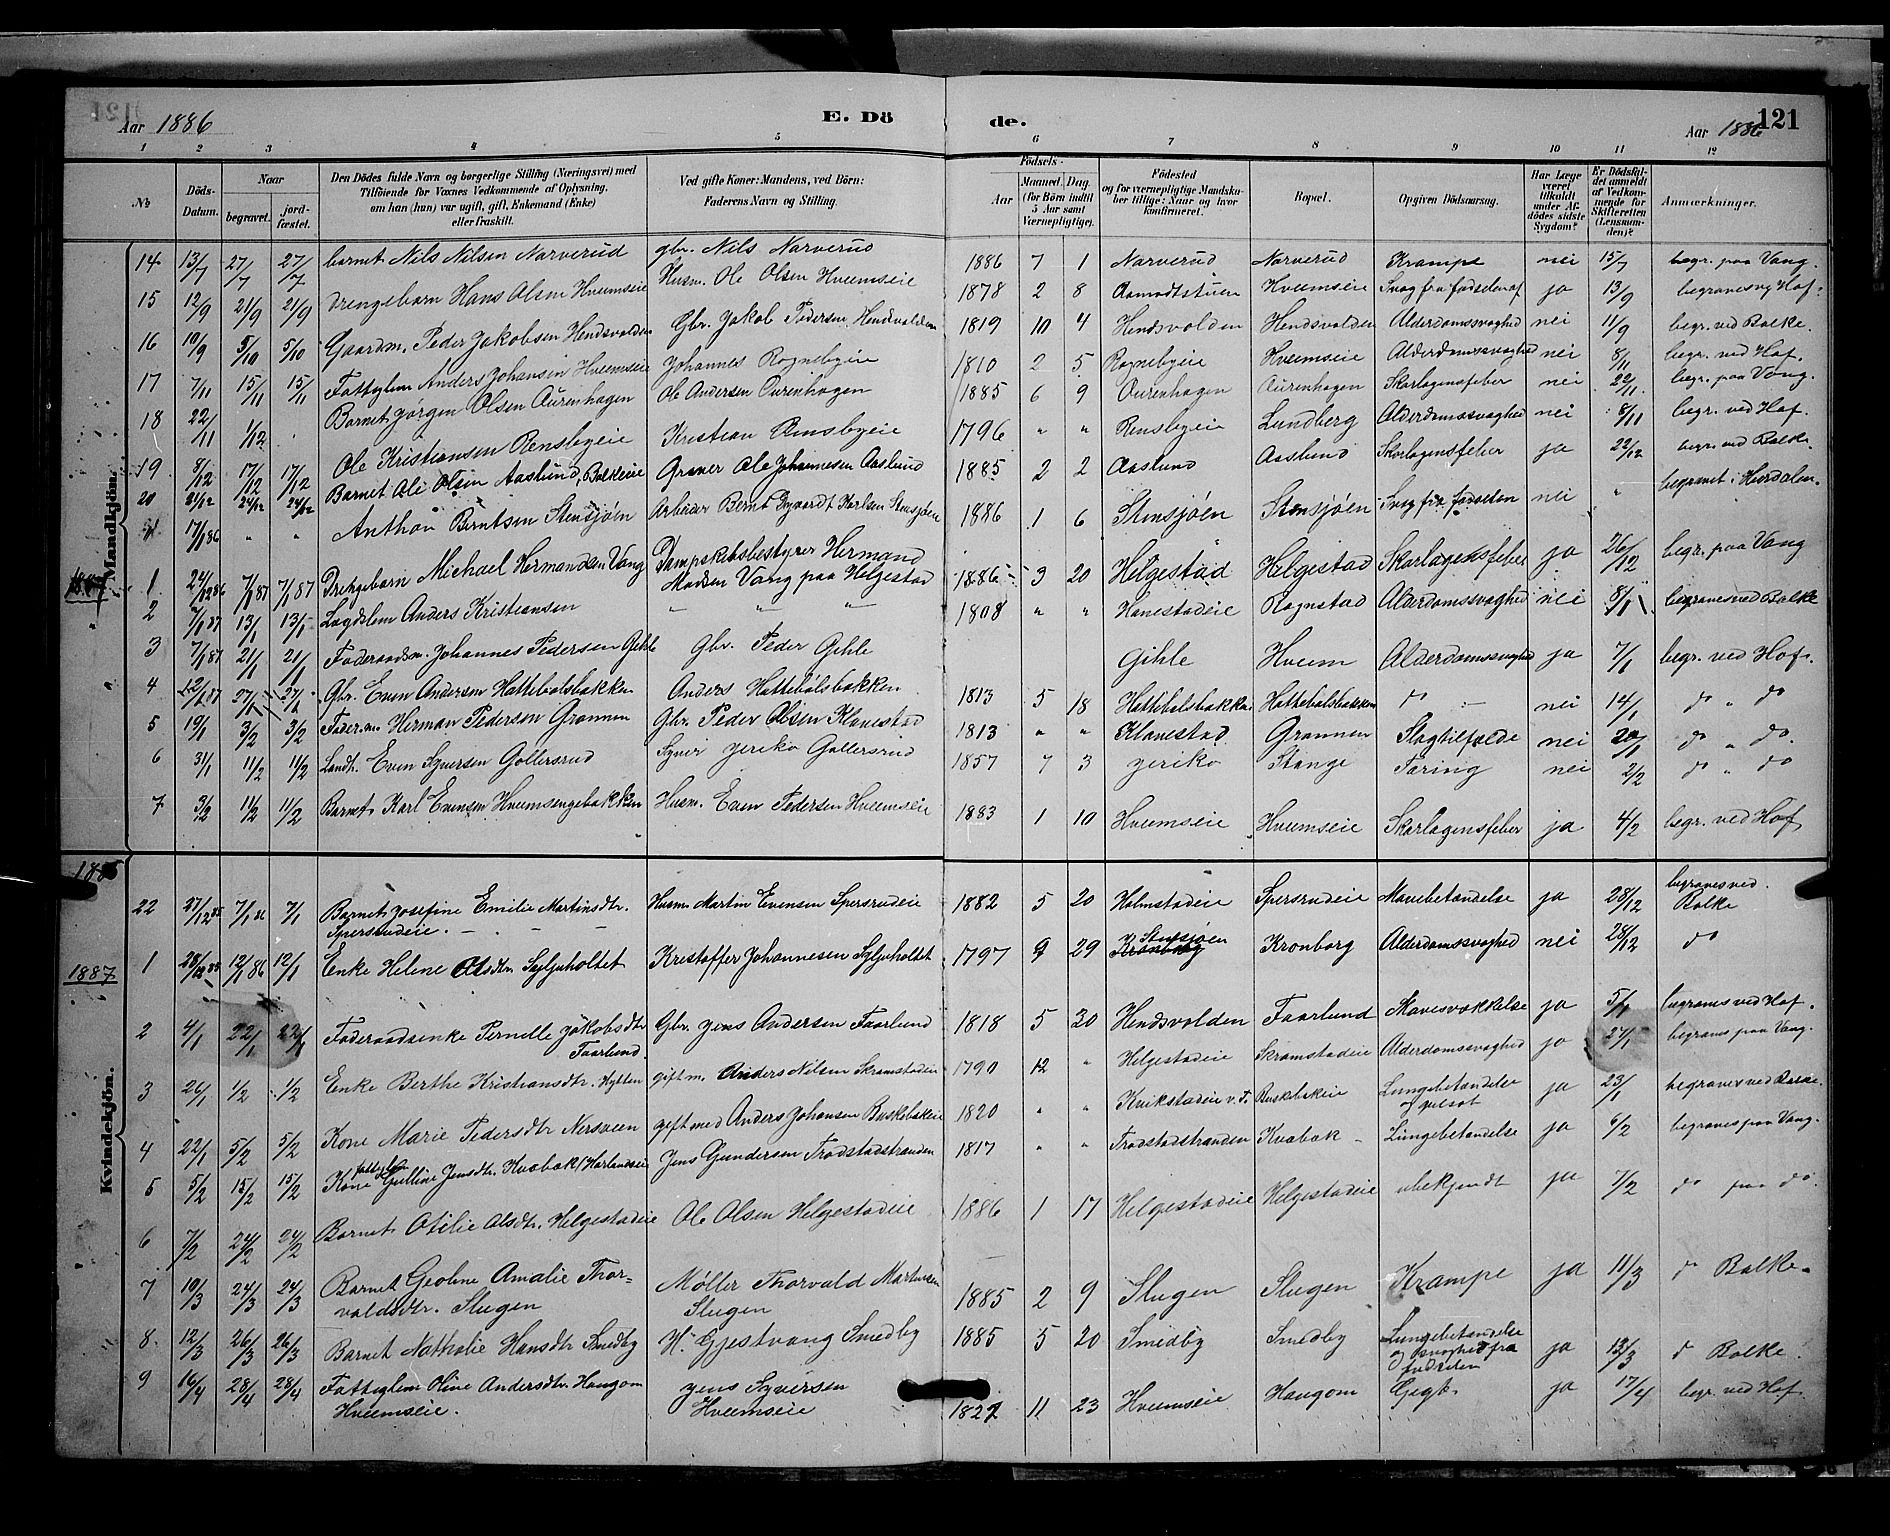 Aar 1886 E. Dö de. Aar 1886 121
1 2 3 4 5 6 7 8 9 10 11 12
№ Döds-Datum. Naar begravet. jordfæstet. Den Dödes fulde Navn og borgerlige Stilling (Næringsvei) med Tilföiende for Voxnes Vedkommende af Oplysning, om han (hun) var ugift, gift, Enkemand (Enke) eller fraskilt. Ved gifte Koner: Mandens, ved Börn: Faderens Navn og Stilling. Födsels- Aar Maaned. Dag. (for Börn indtil 5 Aar samt Værnepligtige). Födested og for værnepligtige Mandskaber tillige: Naar og hvor konfirmeret. Bopæl. Opgiven Dödsaarsag. Har Læge været tilkaldt under Afdödes sidste Sygdom? Er Dödsfaldet anmeldt af Vedkommende for Skifteretten (Lensmanden)? Anmærkninger.
Mandkjön.
14 13/7 27/7 27/7 barnet Nils Nilsen Narverud gbr. Nils Narverud 1886 7 1 Narverud Narverud Krampe nei 15/7 begr. paa Vang.
15 12/9 21/9 21/9 Drengebarn Hans Olsen Hveemseie Husm. Ole Olsen Hveemseie 1878 2 8 Aamodtstuen Hveemseie Svag fra fødselen af ja 13/9 begraves v Hof.
16 10/9 5/10 5/10 Gaardm. Peder Jakobsen Hendsvolden Gbr. Jakob Pedersen Hendsvolden 1819 10 4 Hendsvolden Hendsvolden Alderdomssvaghed nei 11/9 begr. ved Balke.
17 7/11 15/11 15/11 Fattiglem Anders Johansen Hveemseie Johannes Rognebyeie 1810 2 5 Rognebyeie Hveemseie Alderdomssvaghed nei 8/11 begr. ved Hof.
18 22/11 1/12 Barnet Jørgen Olsen Aurenhagen Ole Andersen Ourenhagen 1885 6 9 Ourenhagen Aurenhagen Skarlagensfeber nei 22/11 begr. paa Vang.
Ole Kristiansen Rensbyeie Kristian Rensbyeie 1796 " " Rensbyeie Lundberg Alderdomssvaghed nei 8/11 begr. ved Hof.
19 8/12 17/12 17/12 Barnet Ole Olsen Aaslund, Balkeeie Graver Ole Johannesen Aaslund 1885 2 2 Aaslund Aaslund Skarlagensfeber ja 22/12 begr. ved Balke
20 21/12 24/12 24/12
17/1 86 " " Anthon Berntsen Stensjøen Arbeider Bernt Karlsen Stensjøen 1886 1 6 Stensjøen Stensjøen Svag fra fødselen nei " begravet i Hurdalen.
1887
1 24/12 86 7/1 87 7/1 87 Drengebarn Michael Hermandsen Vang Dampskibsbestyrer Hermand Madsen Vang paa Helgestad 1886 3 20 Helgestad Helgestad Skarlagensfeber ja 26/12 begr. paa Vang
2 7/1 87 13/1 13/1 Lægdslem Anders Kristiansen " " " 1808 " " Hanestadeie Rognstad Alderdomssvaghed nei 8/1 begraves ved Balke
3 7/1 87 21/1 21/1 Føderaadsm. Johannes Pedersen Gihle Gbr. Peder Gihle Gihle Hveem Alderdomssvaghed ja 7/1 begr. ved Hof.
4 12/1 87 27/1 27/1 Gbr. Even Andersen Hattebølsbakken Anders Hattebølsbakken 1813 5 18 Hattebølsbakken Hattebølsbakken do nei 14/1 do " do
5 19/1 3/2 3/2 Føder.m. Herman Pedersen Grønnen Gbr. Peder Olsen Klanestad 1813 " " Klanestad Grønnen Slagtilfælde nei 20/1 do " do.
6 31/1 11/2 11/2 Landh. Even Syversen Gollersrud Syver Jeriko Gollersrud 1857 7 3 Jeriko Stange Tæring nei 2/2 do " do
7 3/2 11/2 11/2 Barnet Karl Evensen Hveemsengebakken Husm. Even Pedersen Hveemseie 1883 1 10 Hveemseie Hveemseie Skarlagensfeber ja 4/2 begr. ved Hof
1886
Kvindekjön.
22 27/12 85 7/1 86 7/1 Barnet Josefine Emilie Martinsdtr. Spersrudeie. Husm Martin Evensen Spersrudeie 1882 5 20 Holmstadeie Spersrudeie Mavebetændelse ja 28/12 begraves ved Balke
1887
1 28/12 85 12/1 86 12/1 Enke Helene Olsdtr. Syljuholtet Kristoffer Johannesen Syljuholtet 1797 9 29 Stensjøen Kronborg Kronborg Alderdomssvaghed nei 28/12 do
2 4/1 22/1 22/1 Føderaadsenke Pernille Jakobsdtr Faarlund. Gbr. Jens Andersen Faarlund 1818 5 30 Hendsvolden Faarlund Mavesvækkelse ja 5/1 begraves ved Hof.
3 26/1 1/2 1/2 Enke Berthe Kristiansdtr. Hytten gift m. Anders Nilsen Skramstadeie 1790 12 " Helgestadeie Skramstadeie Alderdomssvaghed ja 27/1 begraves paa Vang.
4 22/1 5/2 5/2 Kone Marie Pedersdtr Nersveen gift med Anders Johansen Buskebakeie 1820 " " Kvikstadeie v.T. Buskebakeie Lungebetændelse ja 23/1 begraves ved Balke.
5 5/2 15/2 15/2 Kone fattiglem Gulline Jensdtr. Kvæbæk Jens Gundersen Trodstadstranden 1817 " " Trodstadstranden Kvæbæk Lungebetændelse ja 6/2 begraves paa Vang.
6 7/2 24/2 24/2 Barnet Otilie Olsdtr. Helgestadeie Ole Olsen Helgestadeie 1886 1 17 Helgestadeie Helgestadeie ubekjendt ja 7/2 do paa do.
7 10/3 24/3 24/3 Barnet Amalie Thorvaldsdtr. Slugen Møller Thorvald Martinsen Slugen 1885 2 9 Slugen Slugen Krampe ja 11/3 do Balke.
8 12/3 26/3 26/3 Barnet Nathalie Hansdtr Smedby H. Gjestvang Smedby 1885 5 20 Smedby Smedby Lungebetændelse og svaghed fra fødselen ja 13/3 do Balke.
9 16/4 28/4 28/4 Fattiglem Oline Andersdtr. Haugom Hveemseie. Jens Syversen Hveemseie 1822 11 23 Hveemseie Haugom Gigt. ja 17/4 begr. ved Hof.